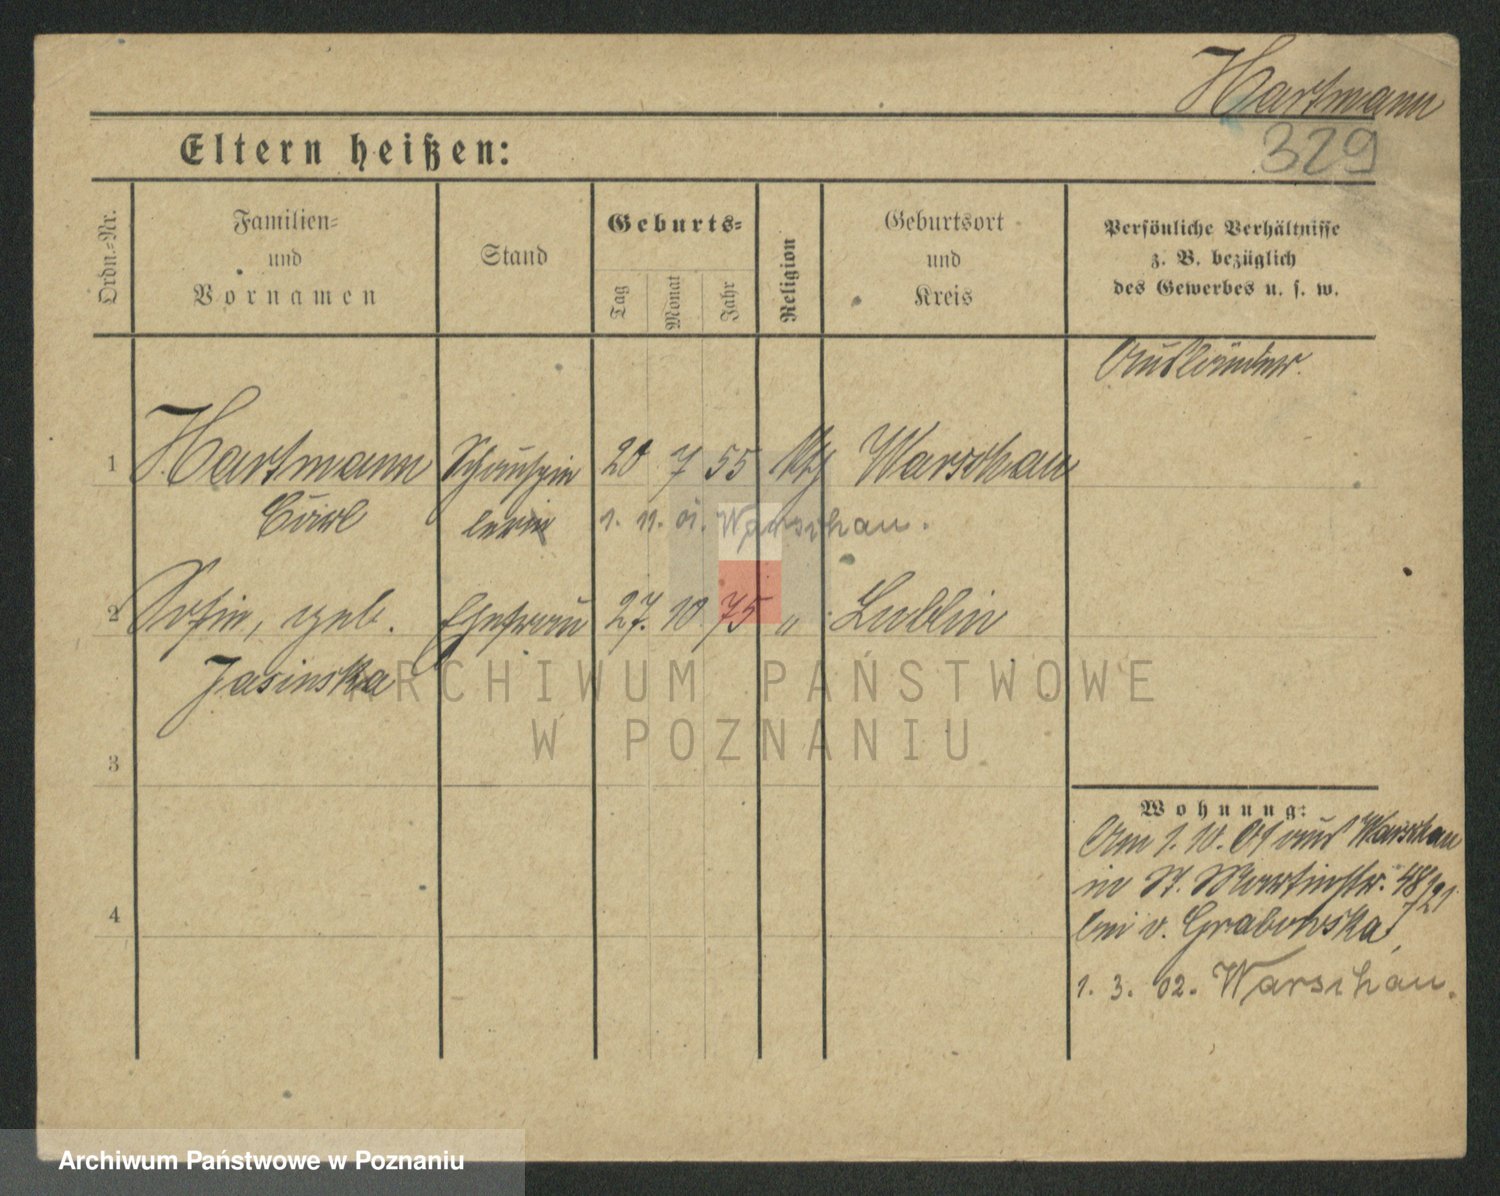 Hartmann
329
Eltern heißen:
Ordn.-Nr.
Familien-
und
Vornamen
Stand
Geburts-
Tag
Monat
Jahr
Religion
Geburtsort
und
Kreis
Persönliche Verhältnisse
z. B. bezüglich
des Gewerbes u. s. w.
Ausländer.
1 Hartmann Schauspie 20 7 55 Warschau
Carl 1. 11. 01. Warschau.
2 Sofie, geb. Ehefrau 27. 10 75 " Lublin
Jasinska
ARCHIWUM PAŃSTWOWE
W POZNANIU
3
Wohnung:
Am 1. 10. 01 aus Warschau
in St. Martinstr. 48/21
bei v. Grabowska
4
1. 3. 02. Warschau.
Archiwum Państwowe w Poznaniu